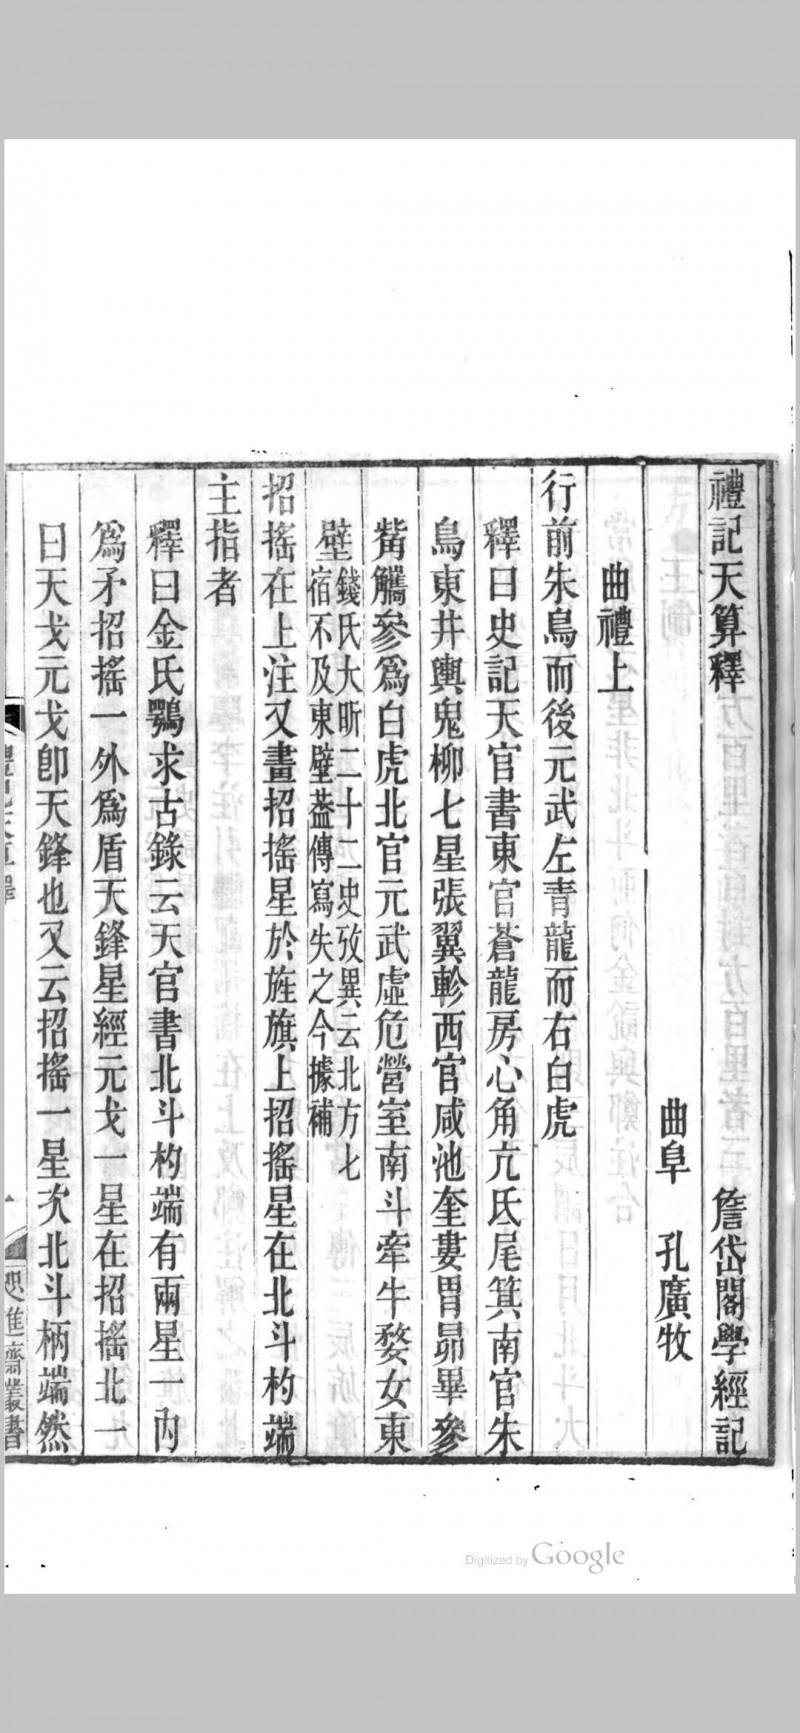 禮記天算釋　詹岱閣學經記
曲阜　孔廣牧
曲禮上
行前朱鳥而後元武左青龍而右白虎
釋曰史記天官書東官蒼龍房心角亢氐尾箕南官朱
鳥東井輿鬼柳七星張翼軫西官咸池奎婁胃昴畢參
觜觿參爲白虎北官元武虛危營室南斗牽牛婺女東
壁錢氏大昕二十二史攷異云北方七
宿不及東壁葢傳寫失之今據補
招搖在上注又畫招搖星於旌旗上招搖星在北斗杓端
主指者
釋曰金氏鶚求古錄云天官書北斗杓端有兩星一內
爲矛招搖一外爲盾天鋒星經元戈一星在招搖北一
曰天戈元戈卽天鋒也又云招搖一星次北斗柄端然
禮記天算釋
一
思進齋叢書
Digitized by Google